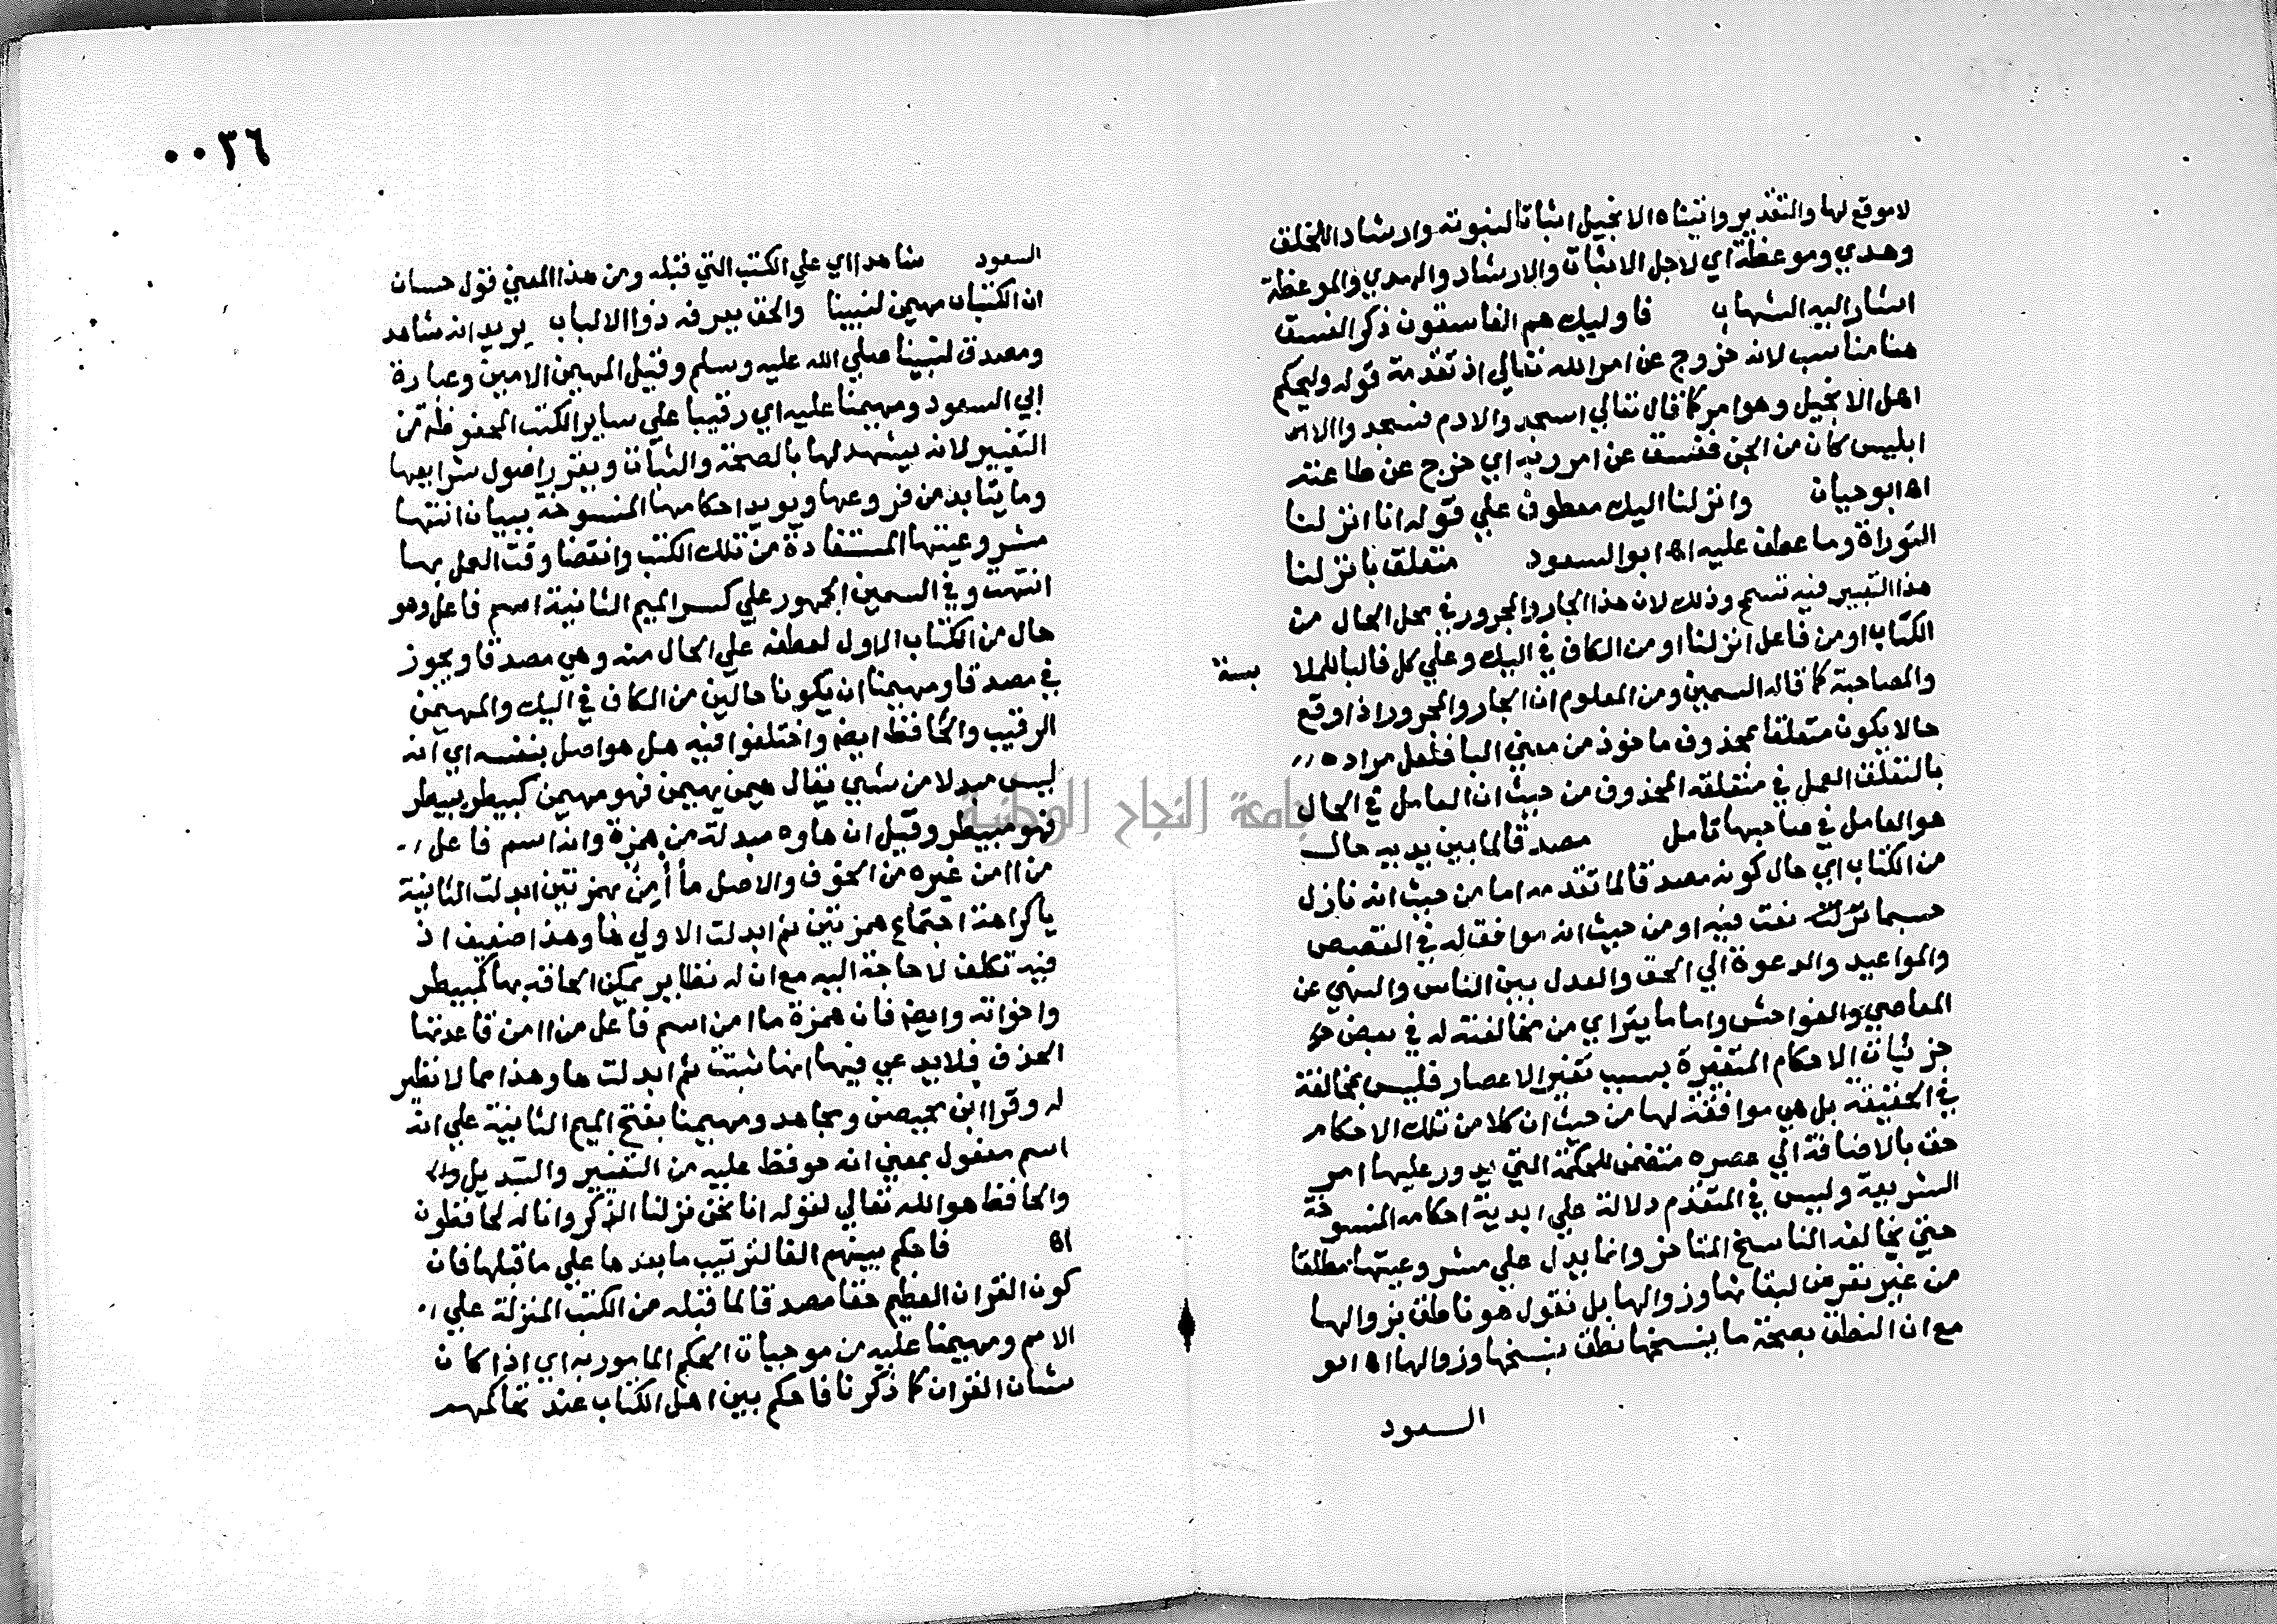 لا موقع لها والتقدير واتيناه الانجيل اثباتا لنبوته وارشادا للخلق
وهدي وموعظة اي لاجل الاثبات والارشاد والهدي والموعظة
اشار اليه الشهاب فاوليك هم الفاسقون ذكر الفسق
هنا مناسب لانه خروج عن امر الله تعالي اذ تقدمه قوله وليحكم
اهل الانجيل وهو امر كما قال تعالي اسجدوا لادم فسجدوا الا
ابليس كان من الجن ففسق عن امر ربه اي خرج عن طاعته
اه ابو حيان وانزلنا اليك معطوف علي قوله انا انزلنا
التوراة وما عطف عليه اه ابو السعود متعلق بانزلنا
هذا التعبير فيه تسمح وذلك لان هذا الجار والمجرور في محل الحال من
الكتاب او من فاعل انزلنا او من الكاف في اليك وعلي كل فالبا للملا
بسة
والمصاحبة كما قاله السمين ومن المعلوم ان الجار والمجرور اذا وقع
حالا يكون متعلقا بمحذوف ماخوذ من معني البا فلعل مراده
بالتعلق العمل في متعلقه المحذوف من حيث ان العامل في الحال
هو العامل في صاحبها تامل مصدقا لما بين يديه حال
من الكتاب اي حال كونه مصدقا لما تقدمه اما من حيث انه نازل
حسبما نعت فيه او من حيث انه موافق له في القصص
والمواعيد والدعوة الي الحق والعدل بين الناس والنهي عن
المعاصي والفواحش واما ما يتراي من مخالفته له في بعض
جزئيات الاحكام المتغيرة بسبب تغير الاعصار فليس بمخالفة
في الحقيقة بل هي موافقة لها من حيث ان كلا من تلك الاحكام
حق بالاضافة الي عصره متضمن للحكمة التي يدور عليها امر
الشريعة وليس في المتقدم دلالة علي ابدية احكامه المنسوخة
حتي يخالفه الناسخ المتاخر وانما يدل علي مشروعيتها مطلقا
من غير تعرض لبقائها وزوالها بل نقول هو ناطق بزوالها
مع ان النطق بصحة ما ينسخها نطق بنسخها وزوالها اه ابو
السعود
٠٠٣٦
السعود شاهدا اي علي الكتب التي قبله ومن هذا المعني قول حسان
ان الكتاب مهيمن لنبينا والحق يعرفه ذووا الالباب يريد انه شاهد
ومصدق لنبينا صلي الله عليه وسلم وقيل المهيمن الامين وعبارة
ابي السعود ومهيمنا عليه اي رقيبا علي ساير الكتب المحفوظة من
التغيير لانه يشهد لها بالصحة والثبات ويقرر اصول شرايعها
وما يتابد من فروعها ويويد احكامها المنسوخة ببيان انتها
مشروعيتها المستفادة من تلك الكتب وانقضا وقت العمل بها
انتهت وفي السمين الجمهور علي كسر الميم الثانية اسم فاعل وهو
حال من الكتاب الاول لعطفه علي الحال منه وهي مصدقا ويجوز
في مصدقا ومهيمنا ان يكونا حالين من الكاف في اليك والمهيمن
الرقيب والحافظ ايضا واختلفوا فيه هل هو اصل بنفسه اي انه
ليس مبدلا من شي يقال هيمن يهيمن فهو مهيمن كبيطر يبيطر
فهو مبيطر وقيل ان هاوه مبدلة من همزة وانه اسم فاعل
من اامن غيره من الخوف والاصل مأأمن بهمزتين ابدلت الثانية
يا كراهة اجتماع همزتين ثم ابدلت الاولي ها وهذا ضعيف اذ
فيه تكلف لا حاجة اليه مع ان له نظاير يمكن الحاقه بها كمبيطر
واخواته وايضا فان همزة ماامن اسم فاعل من اامن قاعدتها
الحذف فلا يدعي فيها انها ثبتت ثم ابدلت ها وهذا مما لا نظير
له وقرا ابن محيصن ومجاهد ومهيمنا بفتح الميم الثانية علي انه
اسم مفعول بمعني انه حوفظ عليه من التغيير والتبديل
والحافظ هو الله تعالي لقوله انا نحن نزلنا الذكر وانا له لحافظون
اه فاحكم بينهم الفا لترتيب ما بعدها علي ما قبلها فان
كون القران العظيم حقا مصدقا لما قبله من الكتب المنزلة علي
الامم ومهيمنا عليه من موجبات الحكم المامور به اي اذا كان
شان القران كما ذكرنا فاحكم بين اهل الكتاب عند تحاكمهم
جامعة النجاح الوطنية